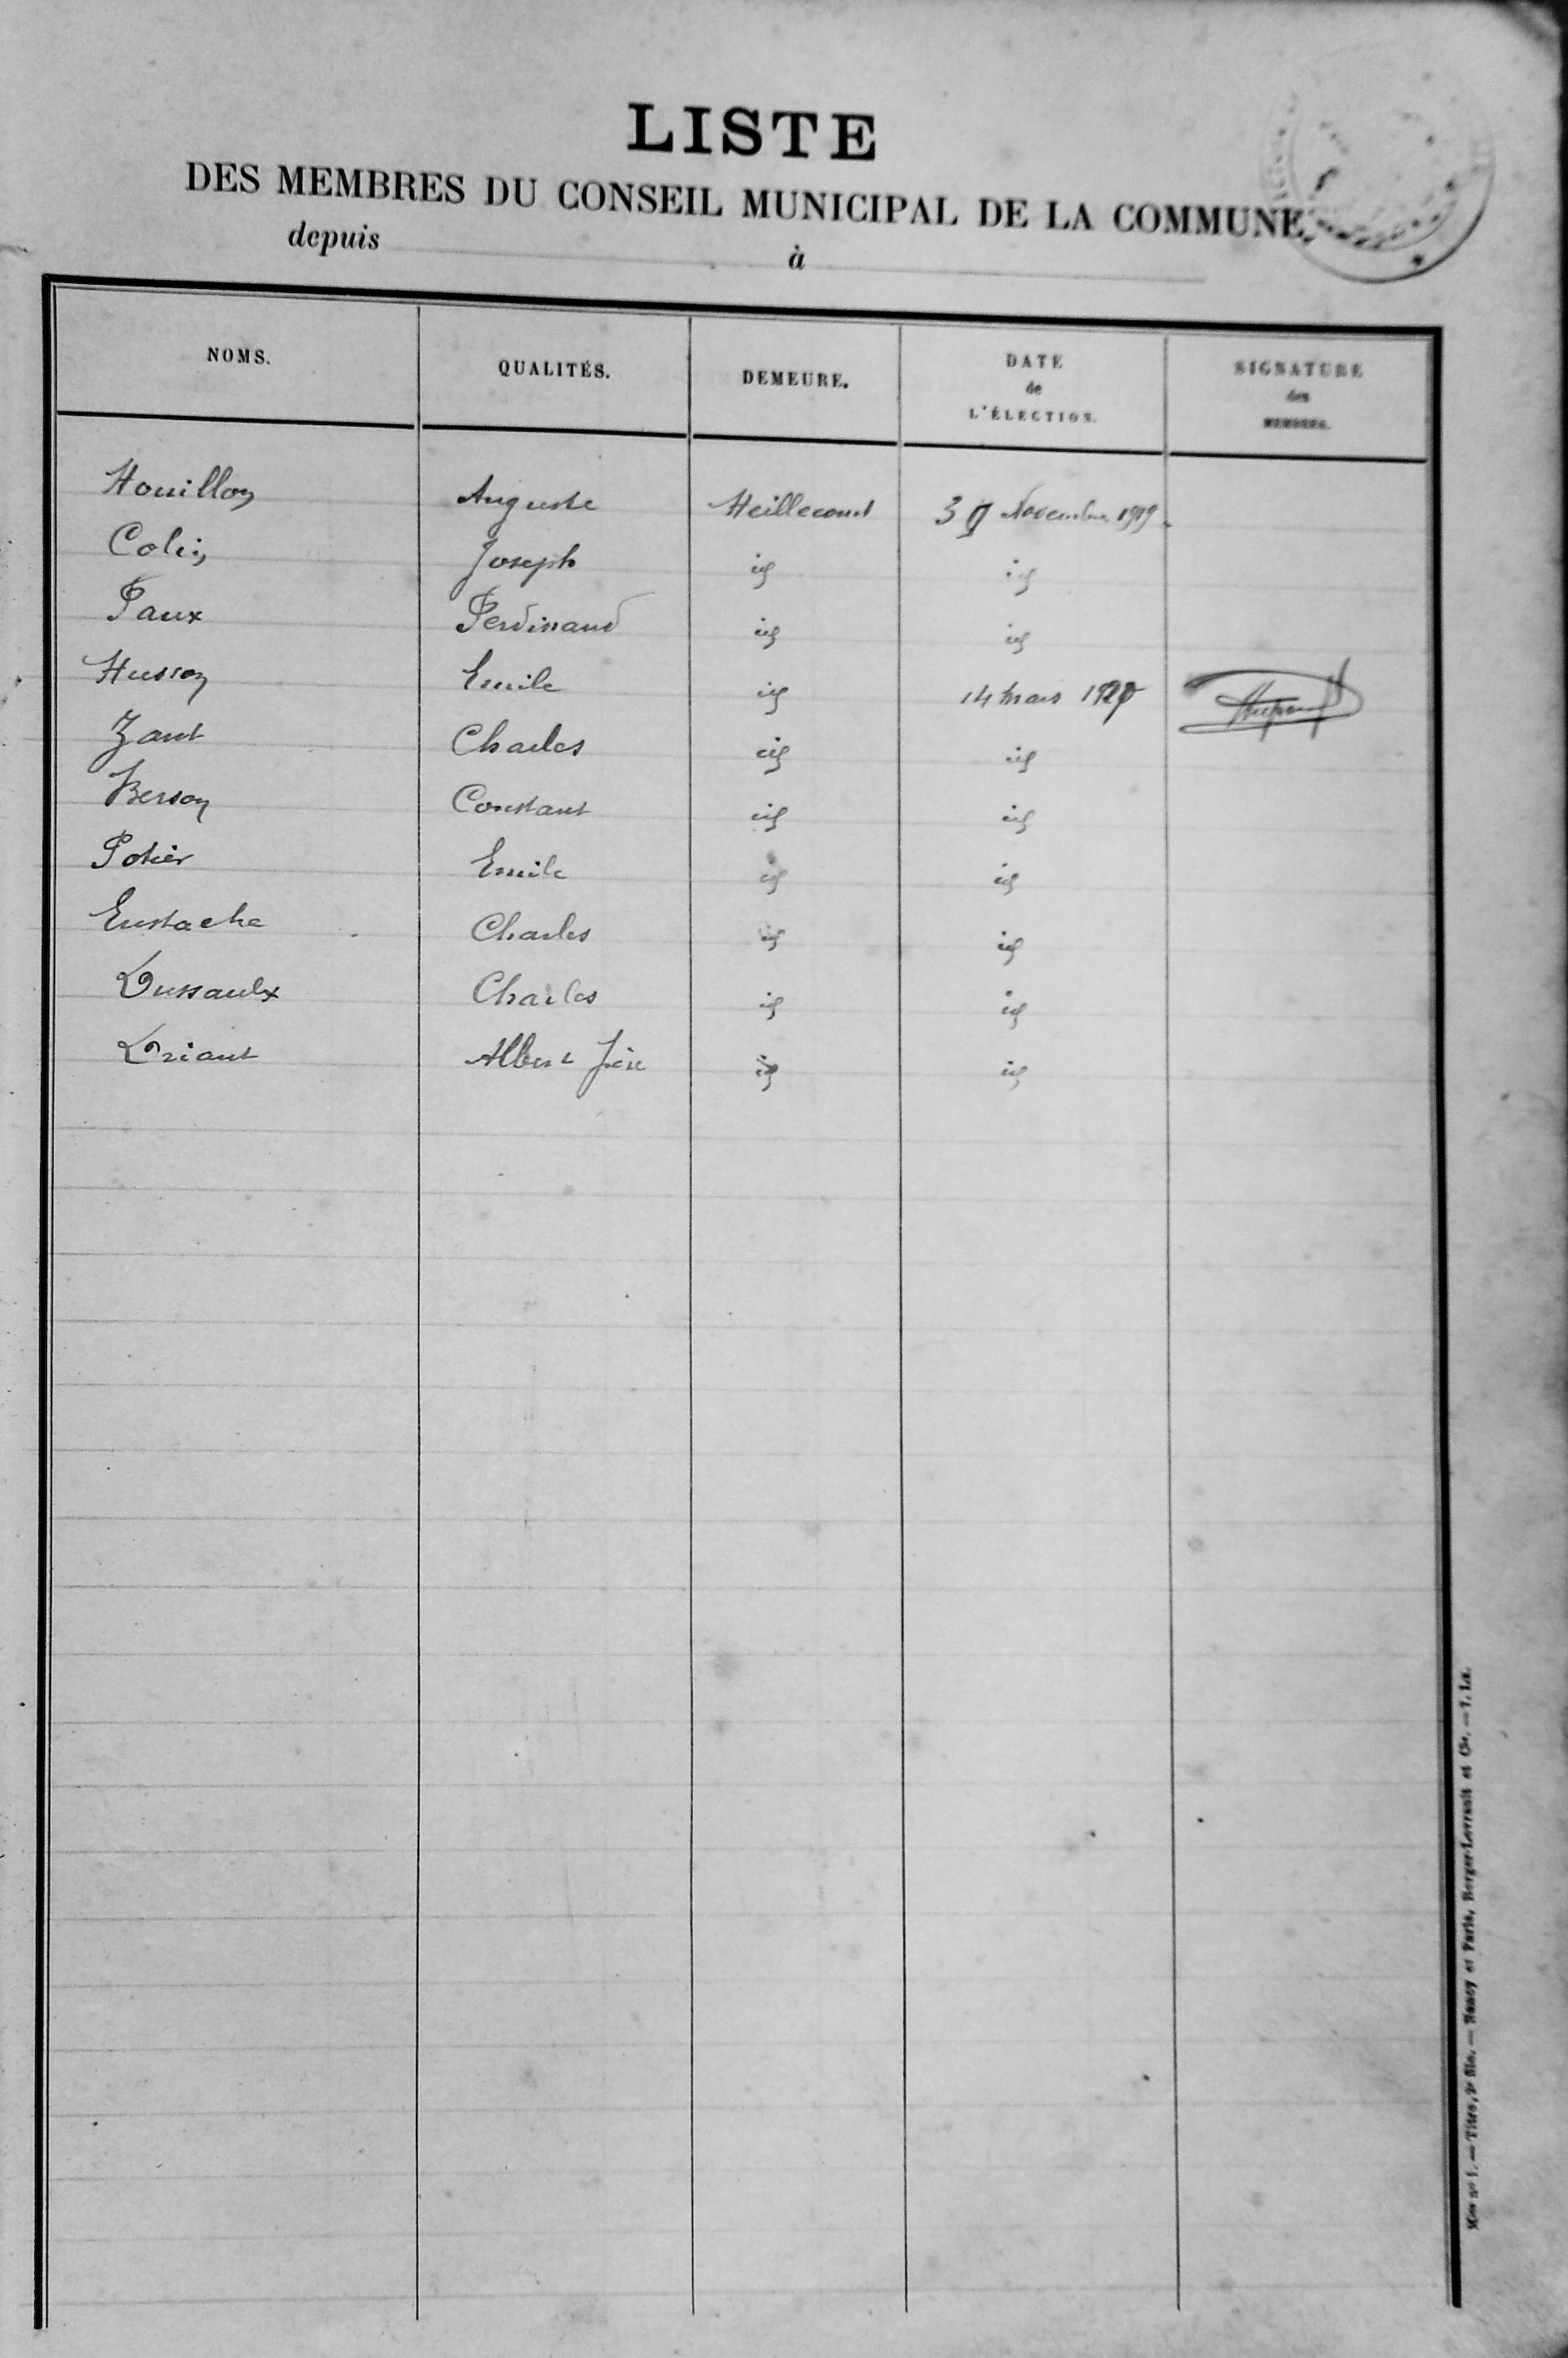 LISTE
DES MEMBRES DU CONSEIL MUNICIPAL DE LA COMMUNE
depuis à
NOMS. QUALITÉS. DEMEURE. DATE de L'ÉLECTION. SIGNATURE des MEMBRES.
Houillon Auguste Heillecourt 30 Novembre 1919
Colin Joseph id id
Paux Ferdinand id id
Husson Emile id 14 Mars 1920
Zant Charles id id
Berson Constant id id
Potier Emile id id
Eustache Charles id id
Dussaulx Charles id id
Driant Albert id id
Nancy et Paris, Berger-Levrault et Cie.